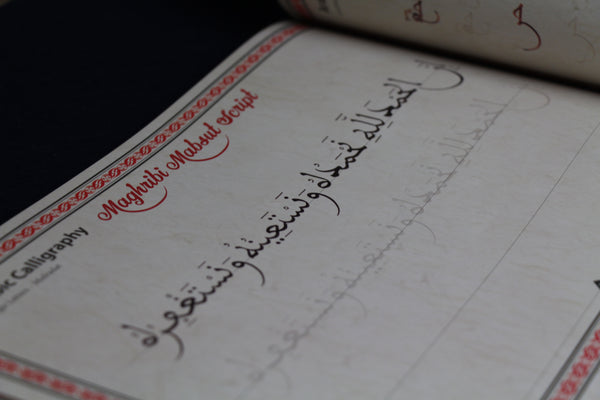 Maghribi Mabsut Script
ic Calligraphy
الحمد لله نحمده ونستعينه ونستغفره